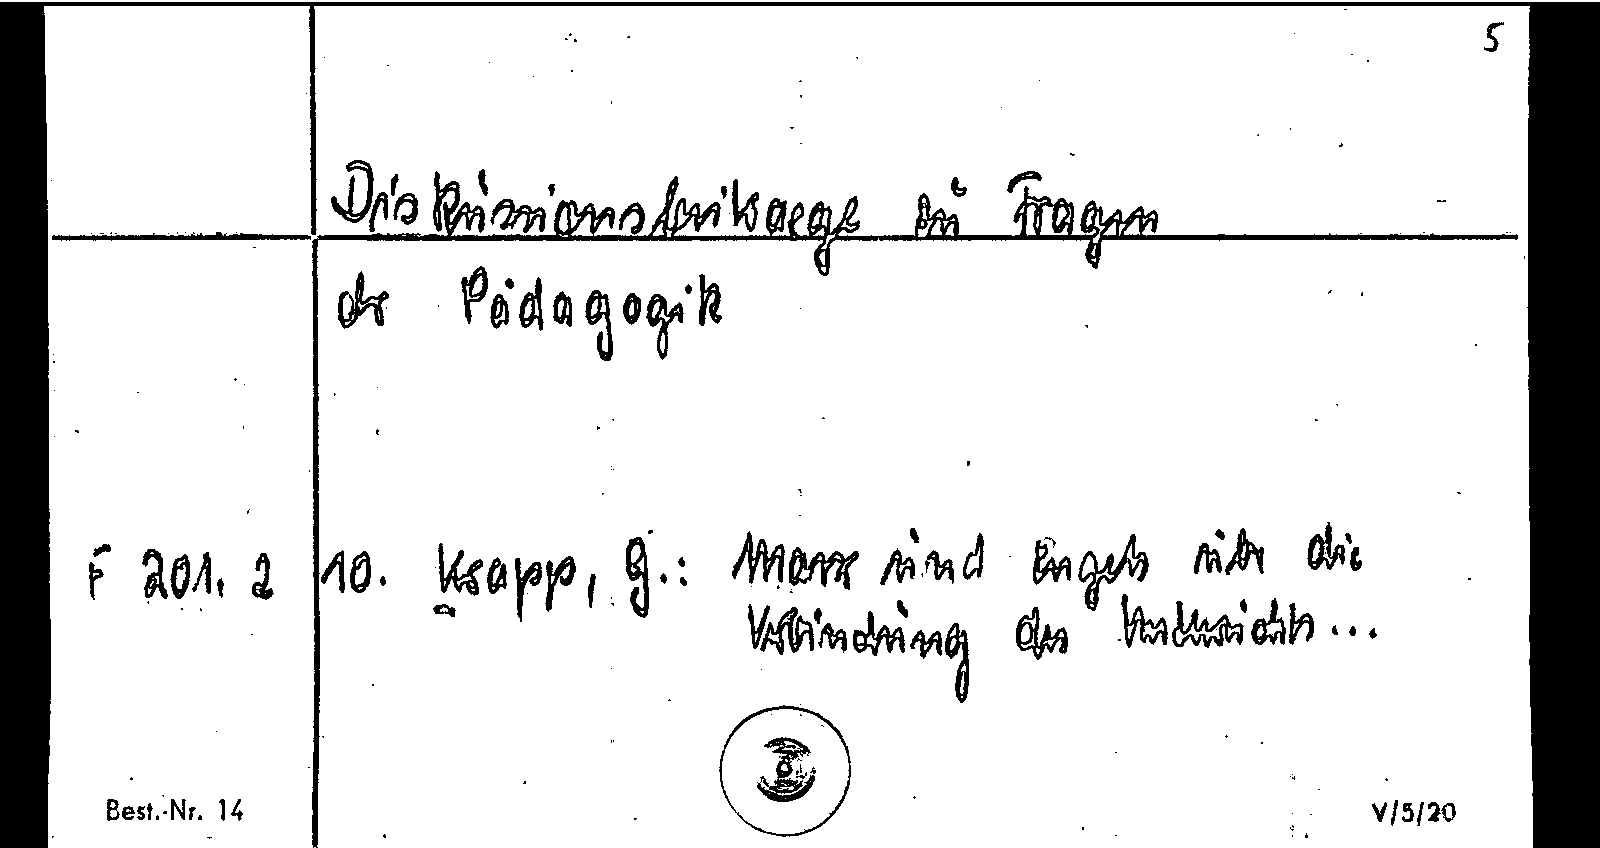 5
Diskussionsbeitraege zu Fragen
der Pädagogik
F 201. 2 10. Krapp, G.: Marx und Engels über die
Verbindung des Unterrichts...
Best.-Nr. 14 V/5/20